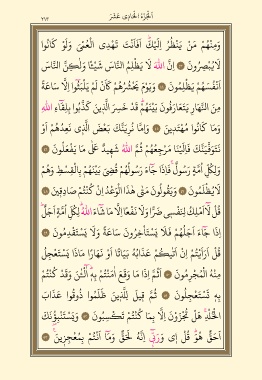 اَلْجُزْءُ الْحَادِى عَشَرَ
٢١٣
وَمِنْهُمْ مَنْ يَنْظُرُ اِلَيْكَ اَفَاَنْتَ تَهْدِى الْعُمْىَ وَلَوْ كَانُوا
لَايُبْصِرُونَ ۞ اِنَّ اللّٰهَ لَا يَظْلِمُ النَّاسَ شَيْـًٔا وَلٰكِنَّ النَّاسَ
اَنْفُسَهُمْ يَظْلِمُونَ ۞ وَيَوْمَ يَحْشُرُهُمْ كَاَنْ لَمْ يَلْبَثُوا اِلَّا سَاعَةً
مِنَ النَّهَارِ يَتَعَارَفُونَ بَيْنَهُمْ قَدْ خَسِرَ الَّذِينَ كَذَّبُوا بِلِقَاءِ اللّٰهِ
وَمَا كَانُوا مُهْتَدِينَ ۞ وَاِمَّا نُرِيَنَّكَ بَعْضَ الَّذِى نَعِدُهُمْ اَوْ
نَتَوَفَّيَنَّكَ فَاِلَيْنَا مَرْجِعُهُمْ ثُمَّ اللّٰهُ شَهِيدٌ عَلٰى مَا يَفْعَلُونَ ۞
وَلِكُلِّ اُمَّةٍ رَسُولٌ فَاِذَا جَاءَ رَسُولُهُمْ قُضِىَ بَيْنَهُمْ بِالْقِسْطِ وَهُمْ
لَايُظْلَمُونَ ۞ وَيَقُولُونَ مَتٰى هٰذَا الْوَعْدُ اِنْ كُنْتُمْ صَادِقِينَ ۞
قُلْ لَا اَمْلِكُ لِنَفْسِى ضَرًّا وَلَا نَفْعًا اِلَّا مَا شَاءَ اللّٰهُ لِكُلِّ اُمَّةٍ اَجَلٌ
اِذَا جَاءَ اَجَلُهُمْ فَلَا يَسْتَاْخِرُونَ سَاعَةً وَلَا يَسْتَقْدِمُونَ ۞
قُلْ اَرَاَيْتُمْ اِنْ اَتٰيكُمْ عَذَابُهُ بَيَاتًا اَوْ نَهَارًا مَاذَا يَسْتَعْجِلُ
مِنْهُ الْمُجْرِمُونَ ۞ اَثُمَّ اِذَا مَا وَقَعَ اٰمَنْتُمْ بِهِ آٰلْـٰٔنَ وَقَدْ كُنْتُمْ
بِهِ تَسْتَعْجِلُونَ ۞ ثُمَّ قِيلَ لِلَّذِينَ ظَلَمُوا ذُوقُوا عَذَابَ
الْخُلْدِ هَلْ تُجْزَوْنَ اِلَّا بِمَا كُنْتُمْ تَكْسِبُونَ ۞ وَيَسْتَنْبِؤُنَكَ
اَحَقٌّ هُوَ قُلْ اِى وَرَبِّى اِنَّهُ لَحَقٌّ وَمَا اَنْتُمْ بِمُعْجِزِينَ ۞